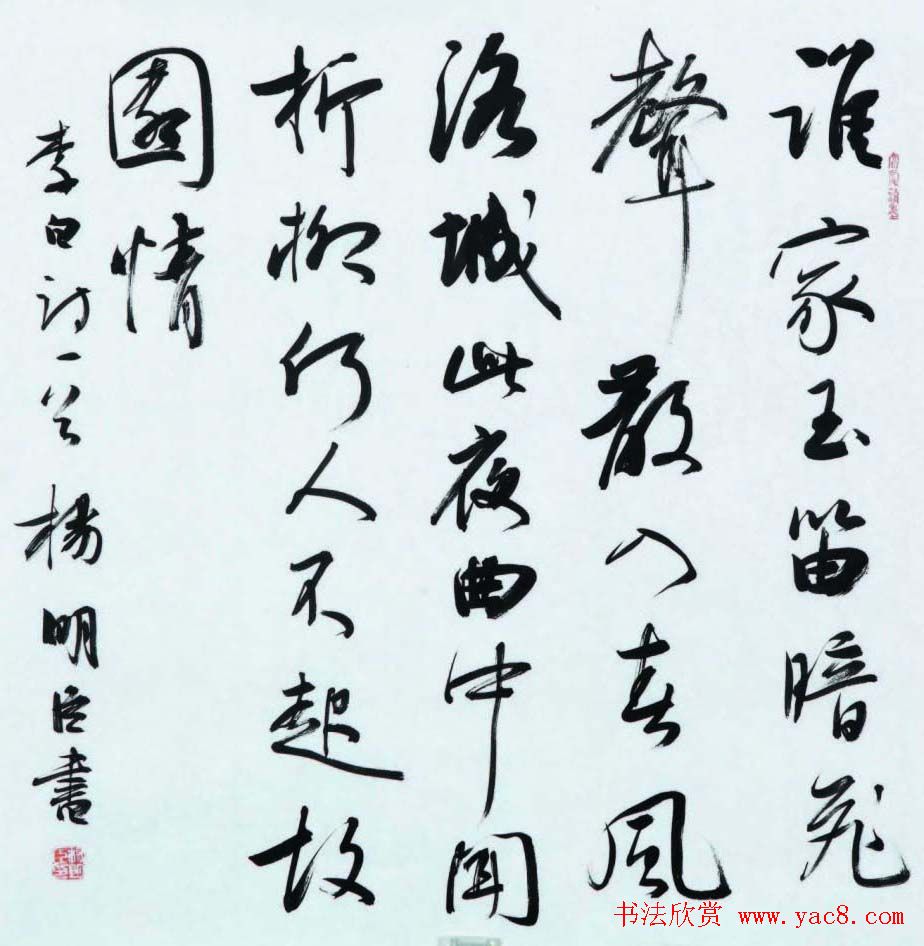 誰家玉笛暗飛
聲散入春風
洛城此夜曲中聞
折柳何人不起故
園情
李白詩一首 楊明臣書
书法欣赏 www.yac8.com